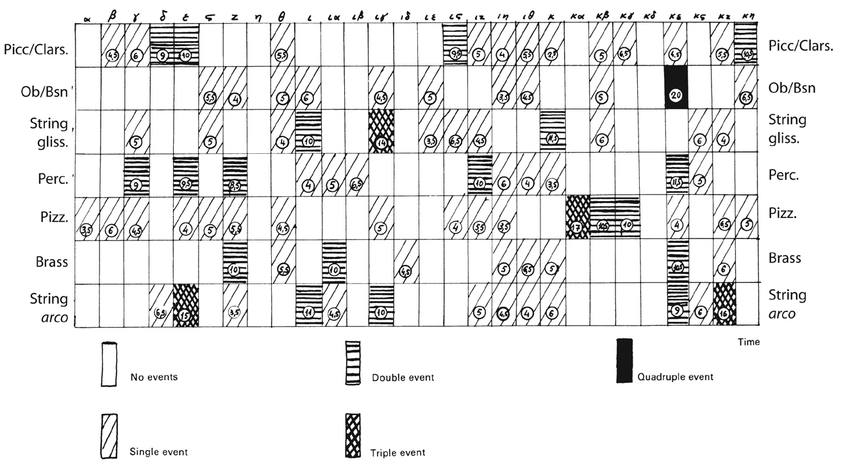 α β γ δ ε ς ζ η θ ι ια ιβ ιγ ιδ ιε ις ιζ ιη ιθ κ κα κβ κγ κδ κε κς κζ κη
Picc/Clars. 4,5 6 9 10 5,5 9,5 5 4 5 4,5 4,5 5,5 Picc/Clars.
Ob/Bsn 5,5 4 5 6 4,5 5 3,5 4,5 5 20 6,5 Ob/Bsn
String gliss. 5 5 4 10 14 3,5 6,5 4,5 6 6 4 String gliss.
Perc. 9 9,5 4 5 6,5 10 6 4 3,5 11,5 5 Perc.
Pizz. 3,5 6 4,5 4 5 5,5 4,5 5 4 5,5 5,5 17 10 4 4,5 5 Pizz.
Brass 10 5,5 10 4,5 5 6,5 5 6 Brass
String arco 6,5 15 3,5 11 4,5 10 5 4,5 4 6 9 6 16 String arco
Time
No events
Double event
Quadruple event
Single event
Triple event